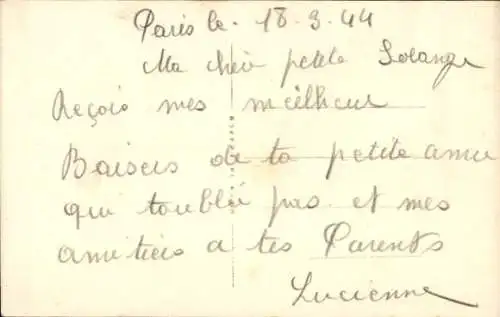 Paris le. 18.3.44
Ma chèir petite Solange
Reçois mes meilheur
Baisers de ta petite amie
qui toublié pas et mes
amitieis a tes Parents
Lucienne